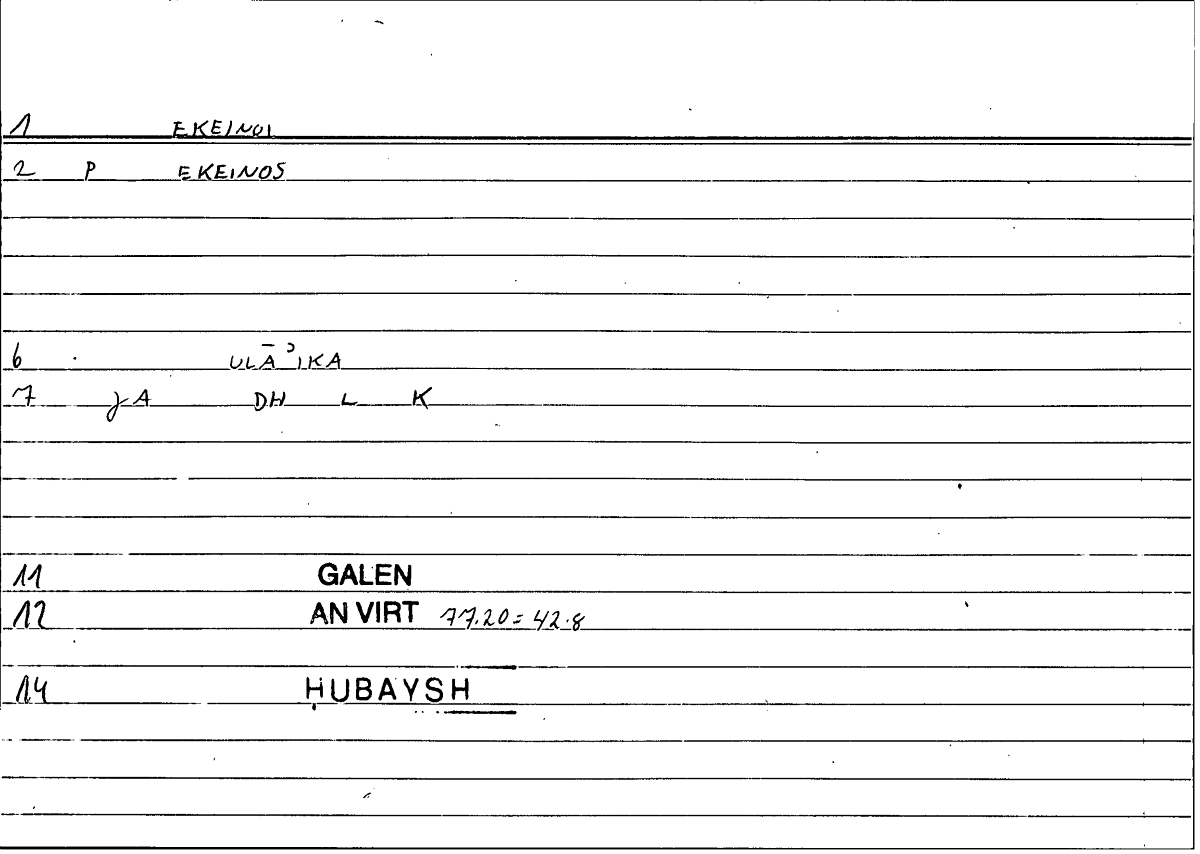 1 EKEINOI
2 P EKEINOS
6 ULĀʾIKA
7 JA DH L K
11 GALEN
12 AN VIRT 77.20 = 42.8
14 ḤUBAYSH